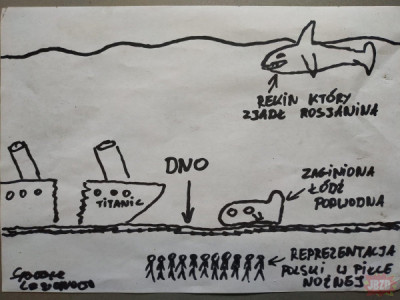 REKIN KTÓRY
ZJADŁ ROSJANINA
DNO
TITANIC
ZAGINIONA
ŁÓDŹ
PODWODNA
REPREZENTACJA
POLSKI W PIŁCE
NOŻNEJ
JBZD